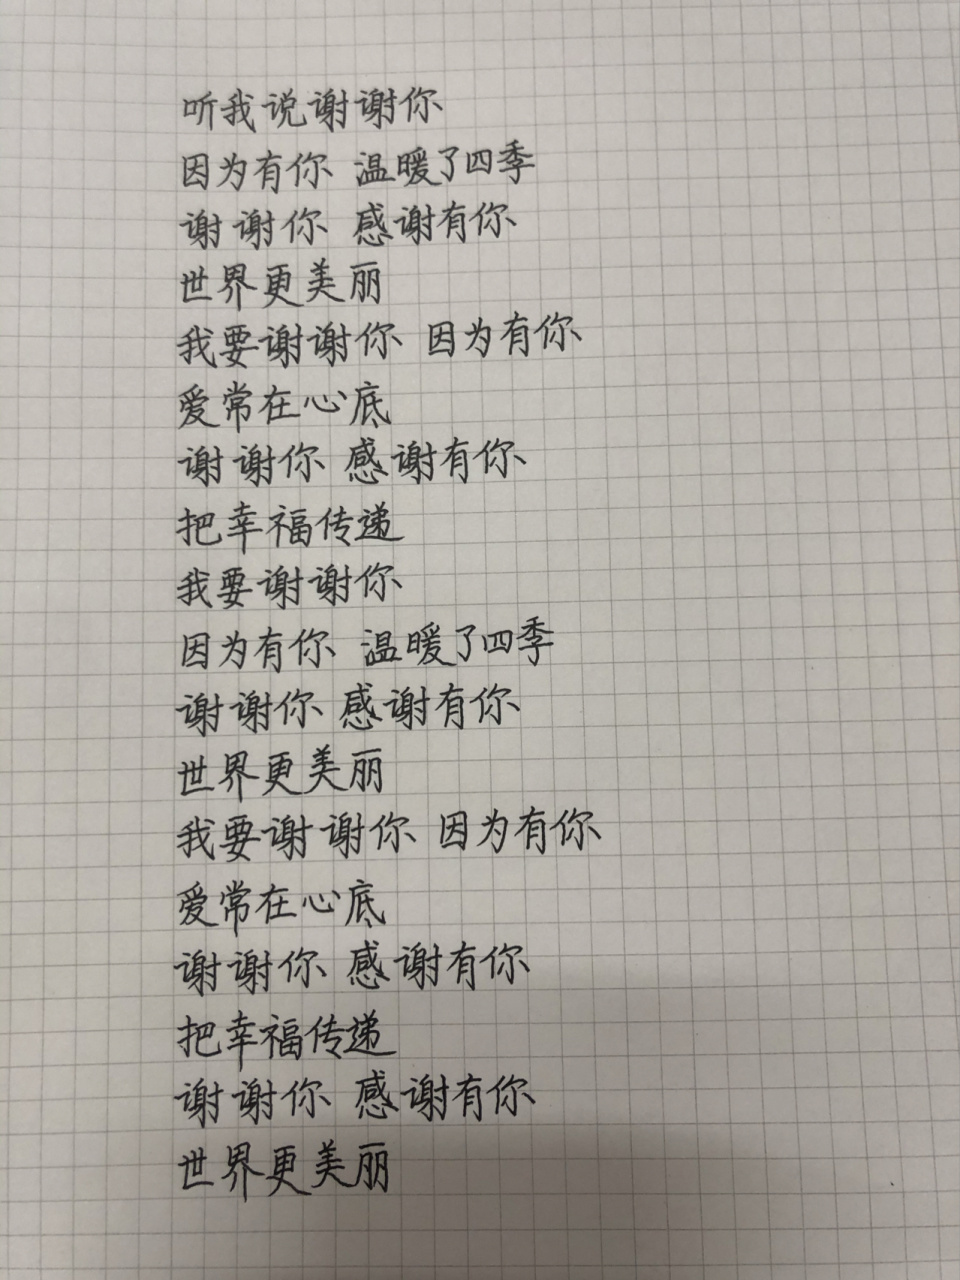 听我说谢谢你
因为有你 温暖了四季
谢谢你 感谢有你
世界更美丽
我要谢谢你 因为有你
爱常在心底
谢谢你 感谢有你
把幸福传递
我要谢谢你
因为有你 温暖了四季
谢谢你 感谢有你
世界更美丽
我要谢谢你 因为有你
爱常在心底
谢谢你 感谢有你
把幸福传递
谢谢你 感谢有你
世界更美丽